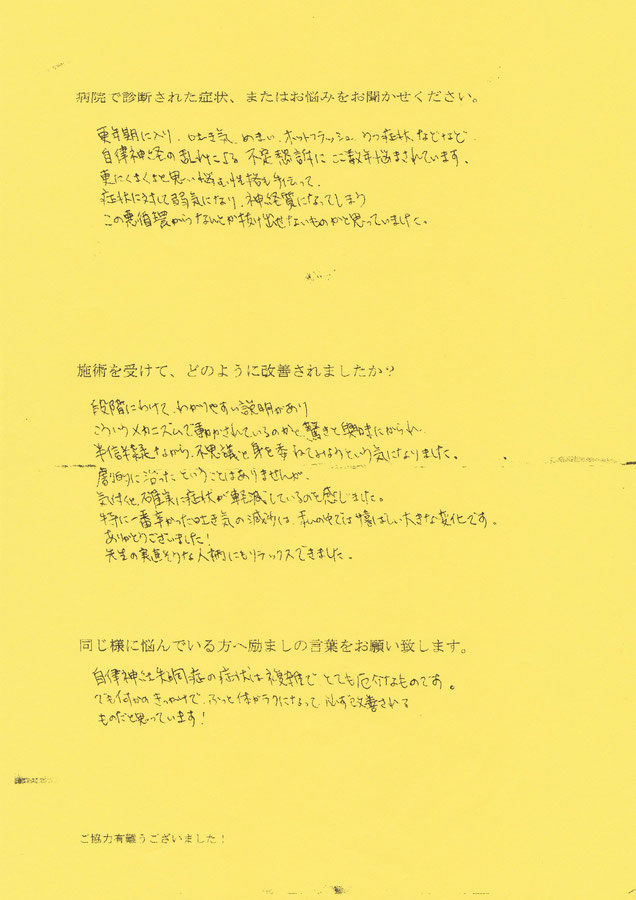 病院で診断された症状、またはお悩みをお聞かせください。
更年期に入り、吐き気、めまい、ホットフラッシュ、うつ症状、などなど
自律神経の乱れによる不定愁訴にここ数年悩まされています。
更にくよくよと思い悩む性格も手伝って、
症状に対して弱気になり、神経質になってしまう
この悪循環からなんとか抜け出せないものかと思っていました。
施術を受けて、どのように改善されましたか？
段階にわけて、わかりやすい説明があり
こういうメカニズムで動かされているのかと、驚きと興味にかられ、
半信半疑ながら、不思議と身を委ねてみようという気になりました。
劇的に治ったということはありませんが、
気付くと、確実に症状が軽減しているのを感じました。
特に一番辛かった吐き気の減少は、私の中では喜ばしい大きな変化です。
ありがとうございました！
先生の実直そうな人柄にもリラックスできました。
同じ様に悩んでいる方へ励ましの言葉をお願い致します。
自律神経失調症の症状は複雑で、とても厄介なものです。
でも何かのきっかけで、ふっと体がラクになって、必ず改善される
ものだと思っています！
ご協力有難うございました！